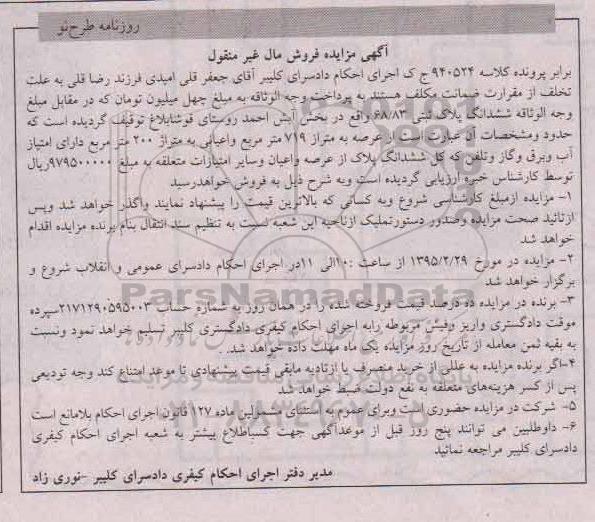 روزنامه طرح‌نو
آگهی مزایده فروش مال غیر منقول
برابر پرونده کلاسه ۹۴۰۵۲۴ج ک اجرای احکام دادسرای کلیبر آقای جعفر قلی امیدی فرزند رضا قلی به علت
تخلف از مقرارت ضمانت مکلف هستند به پرداخت وجه الوثاقه به مبلغ چهل میلیون تومان که در مقابل مبلغ
وجه الوثاقه ششدانگ پلاک ثبتی ۶۸/۸۳ واقع در بخش آبش احمد روستای قوشابلاغ توقیف گردیده است که
حدود ومشخصات آن عبارت است از عرصه به متراژ ۷۱۹ متر مربع واعیانی به متراژ ۲۰۰ متر مربع دارای امتیاز
آب وبرق وگاز وتلفن که کل ششدانگ پلاک از عرصه واعیان وسایر امتیازات متعلقه به مبلغ ۹۷۹۵۰۰۰۰۰ریال
توسط کارشناس خبره ارزیابی گردیده است وبه شرح ذیل به فروش خواهدرسید
۱- مزایده ازمبلغ کارشناسی شروع وبه کسانی که بالاترین قیمت را پیشنهاد نمایند واگذر خواهد شد وپس
ازتائید صحت مزایده وصدور دستورتملیک ازناحیه این شعبه نسبت به تنظیم سند انتقال بنام برنده مزایده اقدام
خواهد شد
۲- مزایده در مورخ ۱۳۹۵/۲/۲۹ از ساعت ۱۰:الی ۱۱در اجرای احکام دادسرای عمومی و انقلاب شروع و
برگزار خواهد شد
۳- برنده در مزایده ده درصد قیمت فروخته شده را در همان روز به شماره حساب ۲۱۷۱۲۹۰۵۹۵۰۰۳سپرده
موقت دادگستری واریز وفیش مربوطه رابه اجرای احکام کیفری دادگستری کلیبر تسلیم خواهد نمود ونسبت
به بقیه ثمن معامله از تاریخ روز مزایده یک ماه مهلت داده خواهد شد.
۴-اگر برنده مزایده به عللی از خرید منصرف یا ازتادیه مابقی قیمت پیشنهادی تا موعد امتناع کند وجه تودیعی
پس از کسر هزینه‌های متعلقه به نفع دولت ضبط خواهد شد
۵- شرکت در مزایده حضوری است وبرای عموم به استثنای مشمولین ماده ۱۲۷ قانون اجرای احکام بلامانع است
۶- داوطلبین می توانند پنج روز قبل از موعدآگهی جهت کسباطلاع بیشتر به شعبه اجرای احکام کیفری
دادسرای کلیبر مراجعه نمائید
مدیر دفتر اجرای احکام کیفری دادسرای کلیبر -نوری زاد
ParsNamadData